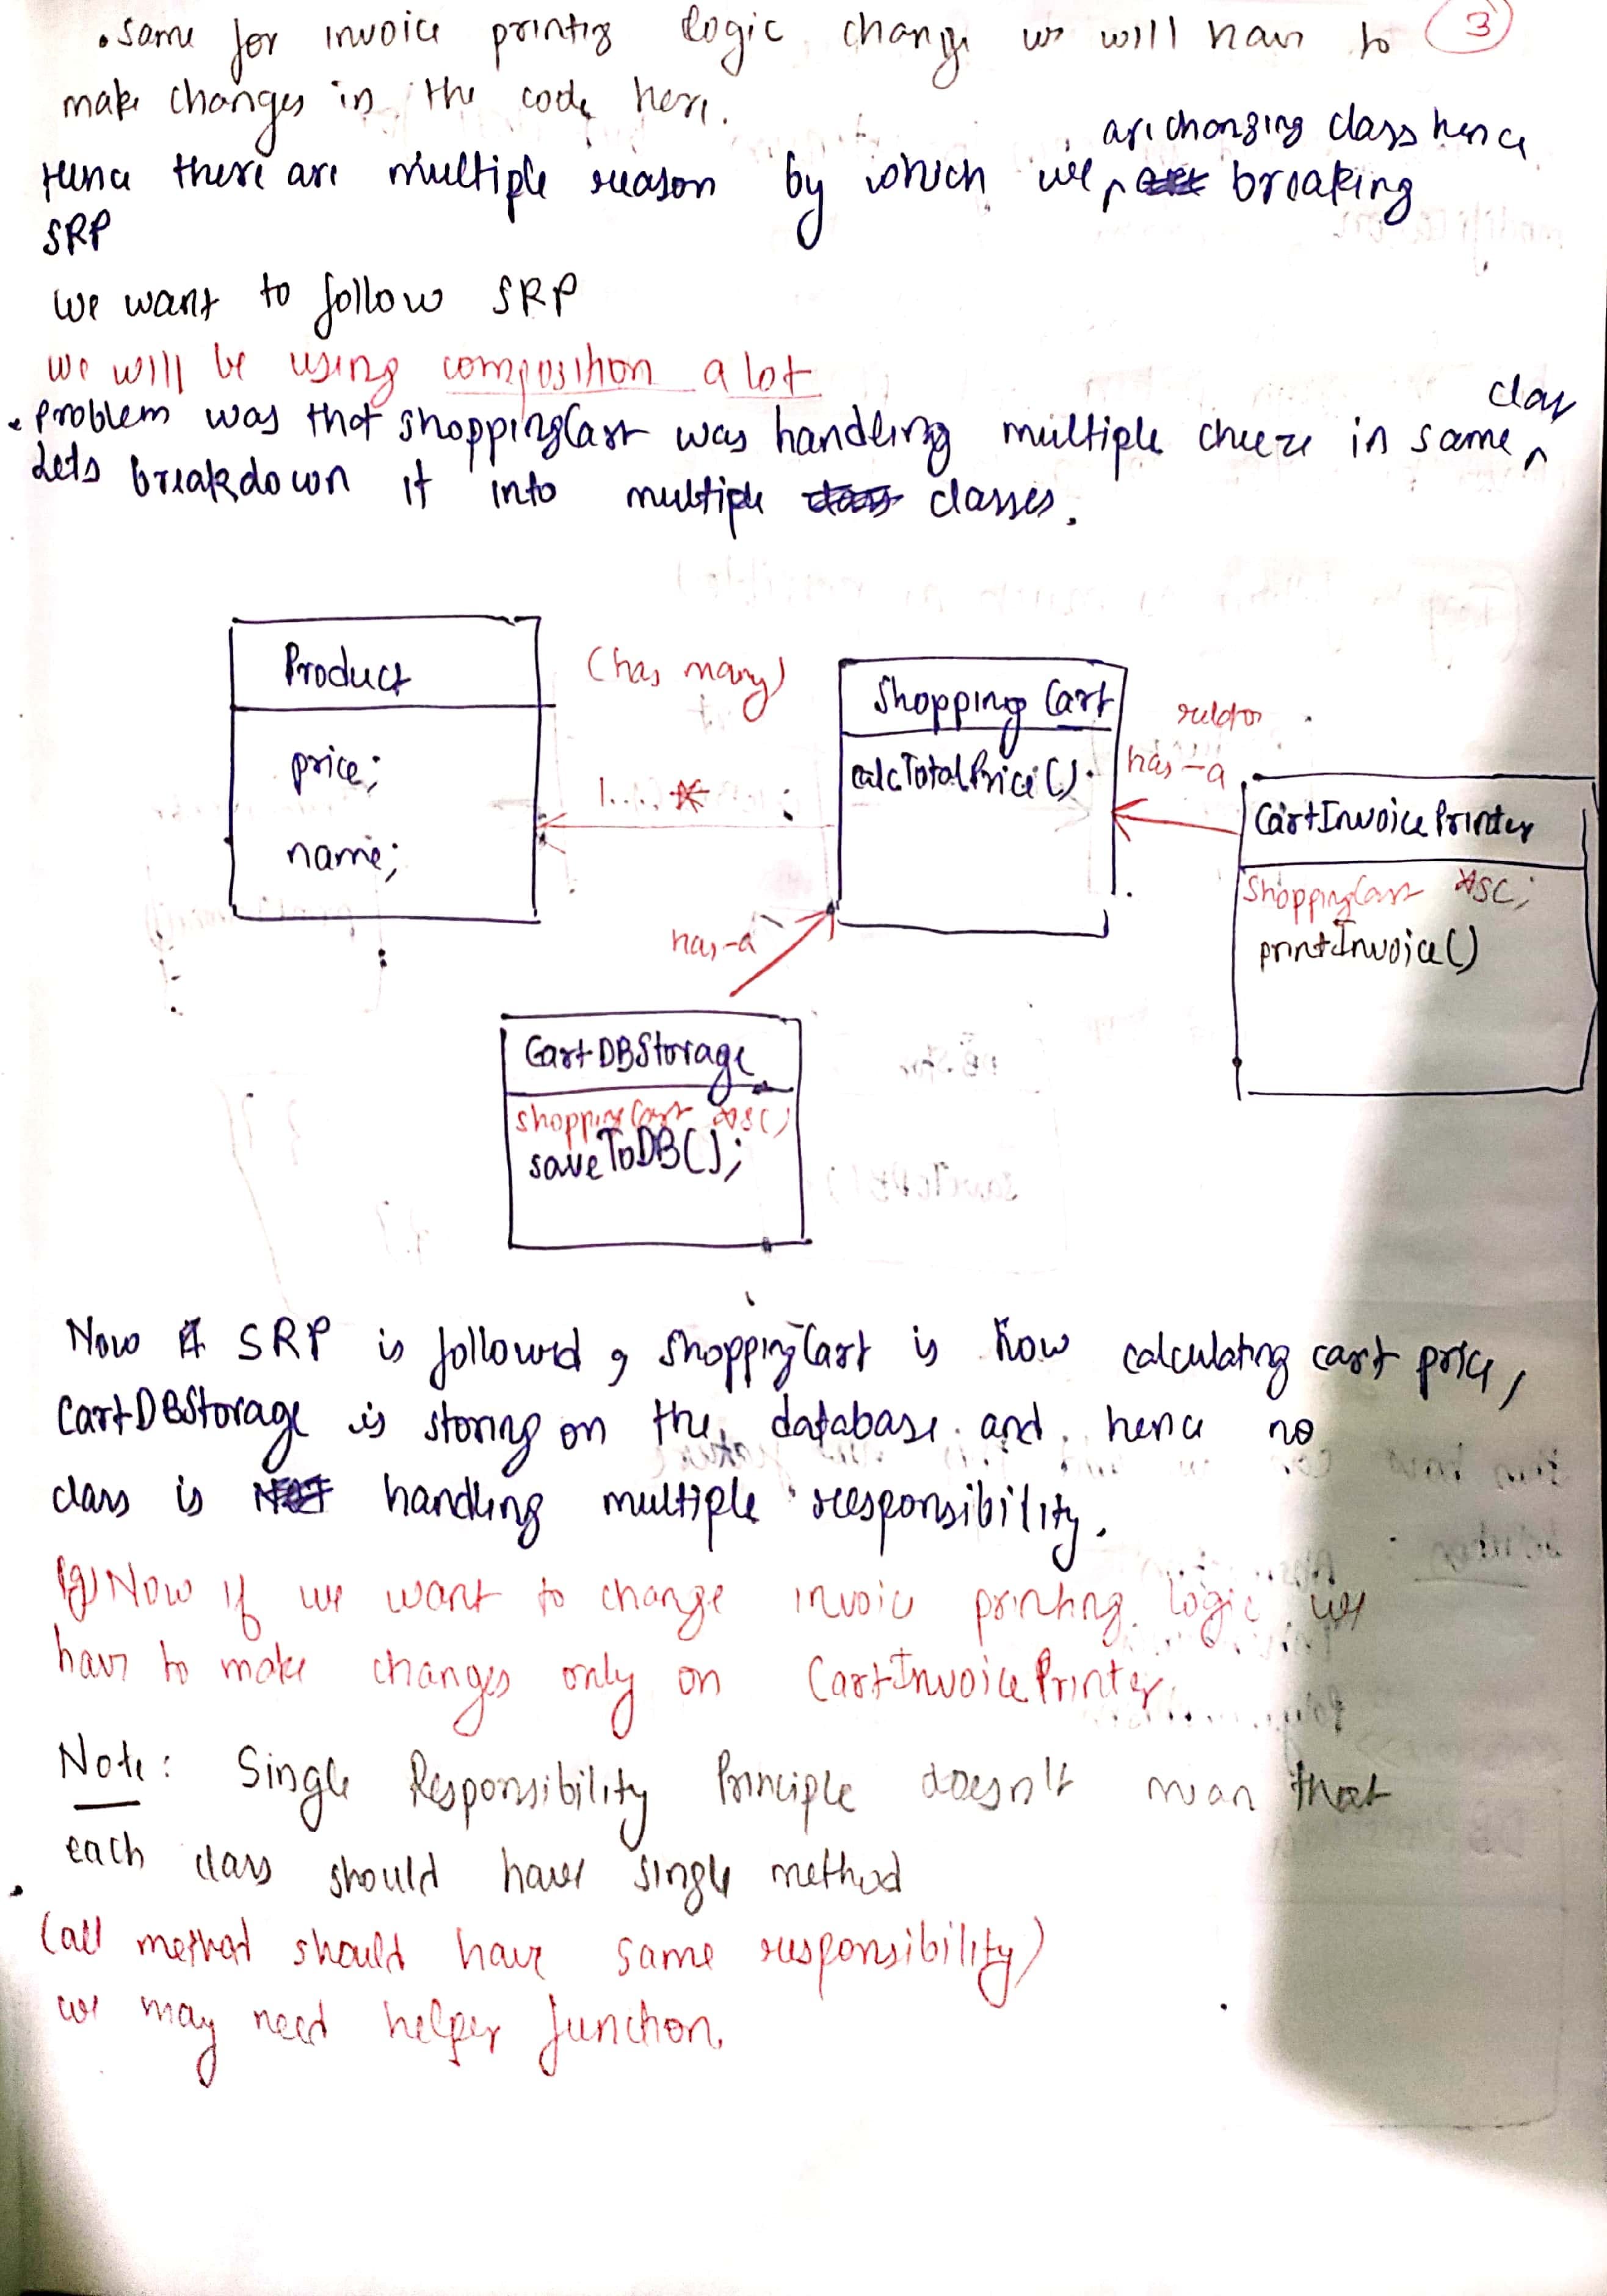 • Same for invoice printing logic change we will have to 3
make changes in the code here.
are changing class hence
Hence there are multiple reason by which we breaking
SRP
we want to follow SRP
we will be using composition a lot
• Problem was that shoppingCart was handling multiple cheeze in same class
Lets breakdown it into multiple classes.
Product
price;
name;
(has many)
1....*
Shopping Cart
calcTotalPrice()
has-a
CartInvoicePrinter
ShoppingCart *SC;
printInvoice()
has-a
CartDBStorage
shoppingCart *SC;
saveToDB();
Now SRP is followed, shoppingCart is now calculating cart price,
CartDBStorage is storing on the database and hence no
class is handling multiple responsibility.
Now if we want to change invoice printing logic we
have to make changes only on CartInvoicePrinter.
Note: Single Responsibility Principle doesn't mean that
each class should have single method
(all method should have same responsibility)
we may need helper function.